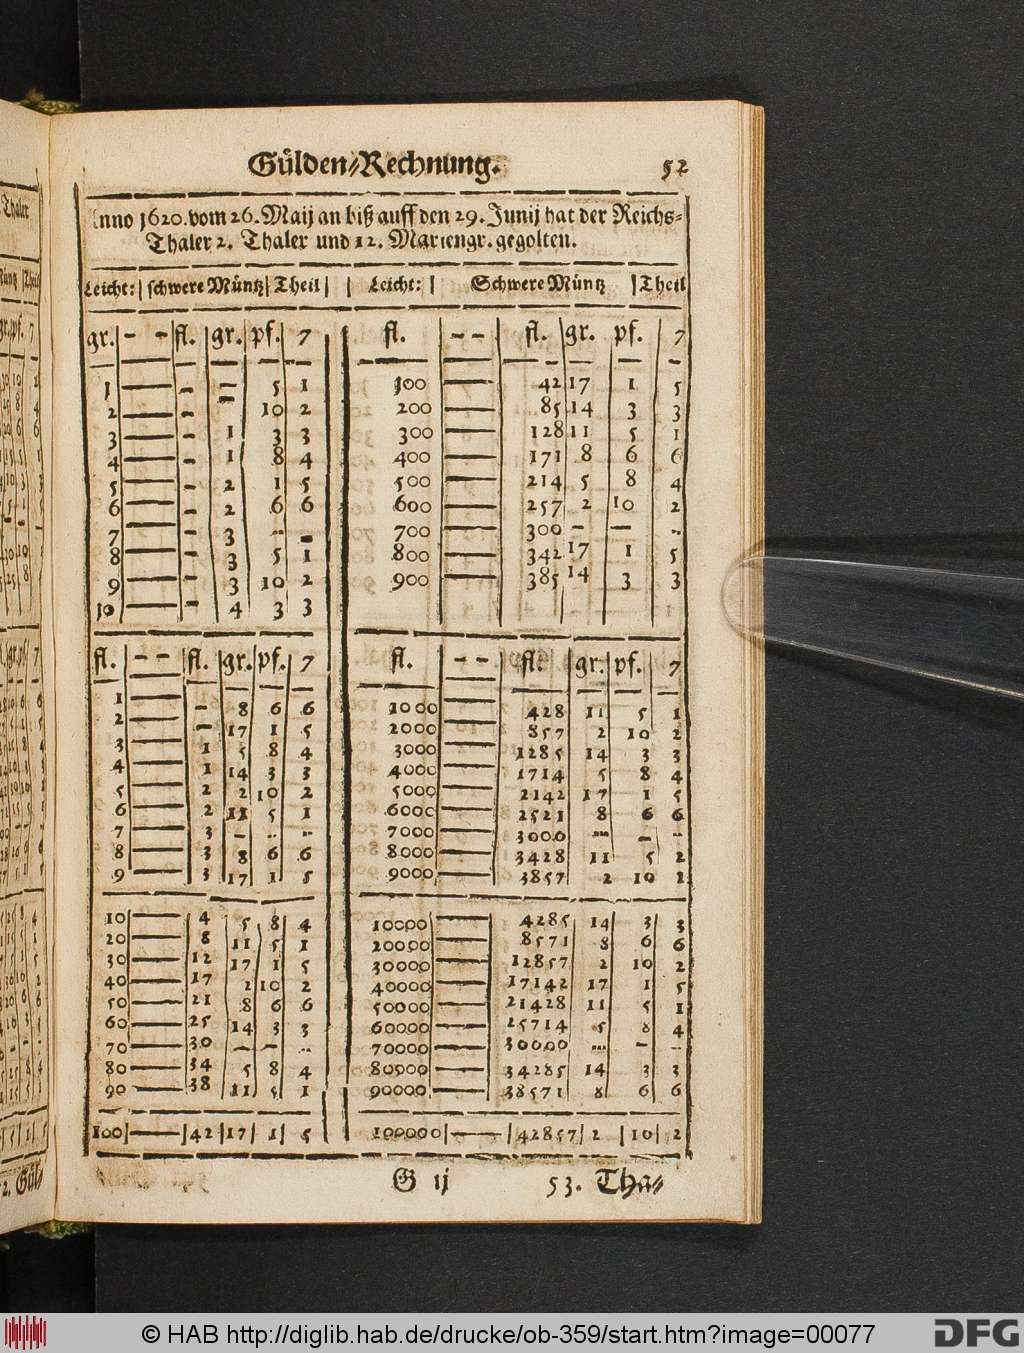 Gülden-Rechnung. 52
Anno 1620. vom 26. Maij an biß auff den 29. Junij hat der Reichs-
Thaler 2. Thaler und 12. Mariengr. gegolten.
Leicht: | schwere Müntz | Theil | | Leicht: | Schwere Müntz | Theil
gr. | - - | fl. | gr. | pf. | 7 | fl. | - - | fl. | gr. | pf. | 7
1 — - — 5 1 | 100 — 42 17 1 5
2 — - — 10 2 | 200 — 85 14 3 3
3 — - 1 3 3 | 300 — 128 11 5 1
4 — - 1 8 4 | 400 — 171 8 6 6
5 — - 2 1 5 | 500 — 214 5 8 4
6 — - 2 6 6 | 600 — 257 2 10 2
7 — - 3 - - | 700 — 300 - — -
8 — - 3 5 1 | 800 — 342 17 1 5
9 — - 3 10 2 | 900 — 385 14 3 3
10 — - 4 3 3
fl. | - - | fl. | gr. | pf. | 7 | fl. | - - | fl. | gr. | pf. | 7
1 — - 8 6 6 | 1000 — 428 11 5 1
2 — - 17 1 5 | 2000 — 857 2 10 2
3 — 1 5 8 4 | 3000 — 1285 14 3 3
4 — 1 14 3 3 | 4000 — 1714 5 8 4
5 — 2 2 10 2 | 5000 — 2142 17 1 5
6 — 2 11 5 1 | 6000 — 2521 8 6 6
7 — 3 - - - | 7000 — 3000 - - -
8 — 3 8 6 6 | 8000 — 3428 11 5 2
9 — 3 17 1 5 | 9000 — 3857 2 10 2
10 — 4 5 8 4 | 10000 — 4285 14 3 3
20 — 8 11 5 1 | 20000 — 8571 8 6 6
30 — 12 17 1 5 | 30000 — 12857 2 10 2
40 — 17 2 10 2 | 40000 — 17142 17 1 5
50 — 21 8 6 6 | 50000 — 21428 11 5 1
60 — 25 14 3 3 | 60000 — 25714 5 8 4
70 — 30 — — - | 70000 — 30000 - - -
80 — 34 5 8 4 | 80000 — 34285 14 3 3
90 — 38 11 5 1 | 90000 — 38571 8 6 6
100 | — | 42 | 17 | 1 | 5 | 100000 | — | 42857 | 2 | 10 | 2
G ij 53. Tha-
© HAB http://diglib.hab.de/drucke/ob-359/start.htm?image=00077
DFG